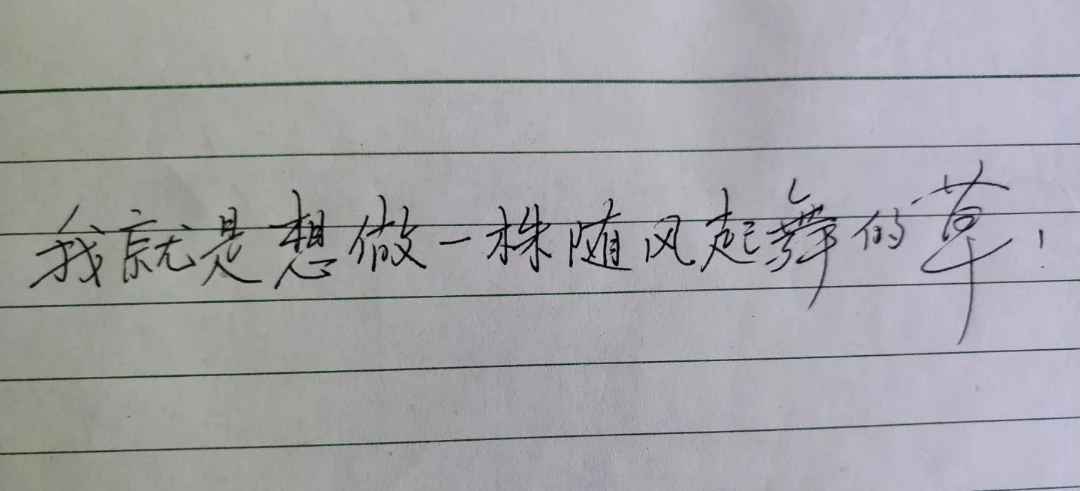 我就是想做一株随风起舞的草，